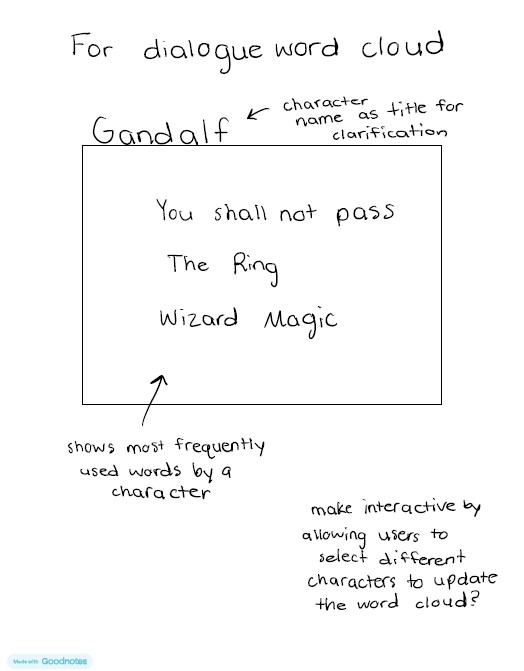 For dialogue word cloud
character
name as title for
clarification
Gandalf
You shall not pass
The Ring
Wizard Magic
shows most frequently
used words by a
character
make interactive by
allowing users to
select different
characters to update
the word cloud?
Made with Goodnotes